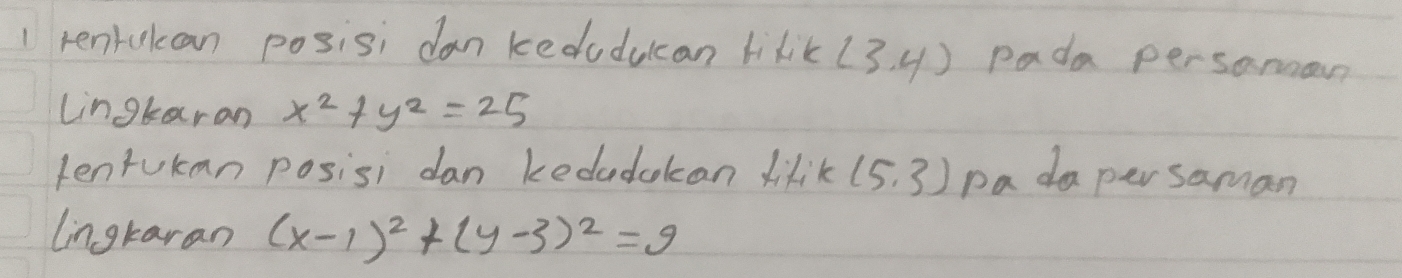 1 tentukan posisi dan kedudukan titik (3.4) pada persaman
Lingkaran x² + y² = 25
tentukan posisi dan kedudukan titik (5.3) pada persaman
lingkaran (x-1)² + (y-3)² = 9